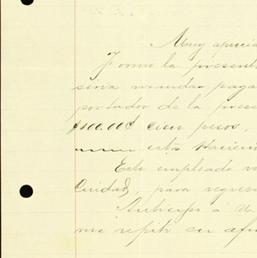 Muy aprecia
Tomo la present
sirva mandar paga
portador de la prese
$100.00 cien pesos,
esta Hacien
Este empleado va
Ciudad, para regres
Anticipo á U
me repito su afm